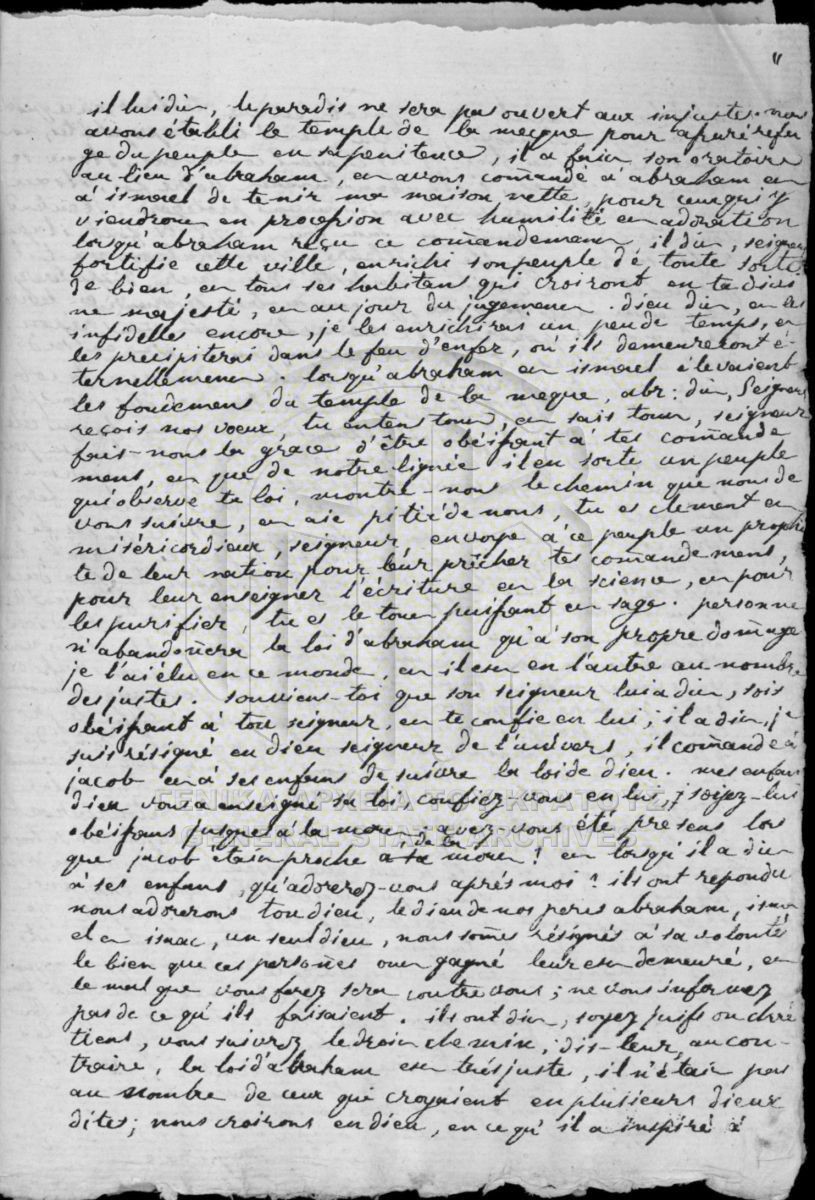 "
il lui dit, le paradis ne sera pas ouvert aux injustes. nous
avons établi le temple de la mecque pour assuré refu
ge du peuple en sa penitence, il a fait son oratoire
au lieu d'abraham, et avons comandé à abraham et
à ismael de tenir ma maison nette, pour ceux qui y
viendront en procession avec humilité et adoration
lorsqu'abraham reçu ce commandement, il dit, seigneur
fortifie cette ville, enrichi son peuple de toute sorte
de bien, et tous ses habitans qui croiront en ta divi
ne majesté, et au jour du jugement. dieu dit, et les
infidelles encore, je les enrichirai un peu de temps, et
les precipiterai dans le feu d'enfer, où ils demeureront é-
ternellement. lorsqu'abraham et ismael élevaient
les fondemens du temple de la meque, abr: dit, Seigneur
reçois nos voeux, tu entens tout, et sais tout, seigneur
fais-nous la grace d'être obéissant à tes comande
mens, et que de notre lignée il en sorte un peuple
qui observe ta loi, montre-nous le chemin que nous de
vons suivre, et aie pitié de nous, tu es clement et
miséricordieux, seigneur envoye à ce peuple un prophe
te de leur nation pour leur prêcher tes comandemens,
pour leur enseigner l'écriture et la science, et pour
les purifier, tu es le tout puissant et sage. personne
n'abandonnera la loi d'abraham qu'à son propre domage
je l'ai élu en ce monde, et il est en l'autre au nombre
des justes. souviens-toi que son seigneur lui a dit, sois
obéissant à ton seigneur, et te confie en lui; il a dit, je
suis résigné en dieu seigneur de l'univers, il comande à
jacob et à ses enfans de suivre la loi de dieu. mes enfans
dieu vous a enseigné sa loi, confiez vous en lui, soiyez-lui
obéissans jusque à la mort; avez-vous été presens lors
que jacob était proche de la mort! et lorsqu'il a dit
à ses enfans, qu'adorerez-vous après moi? ils ont repondu
nous adorerons ton dieu, le dieu de nos peres abraham, isma
el et isaac, un seul dieu, nous somes résignés à sa volonté
le bien que ces personnes ont gagné leur est demeuré, et
le mal que vous ferez sera contre vous; ne vous informez
pas de ce qu'ils faisaient. ils ont dit, soyez juifs ou chré
tiens, vous suivrez le droit chemin, dis-leur, au con-
traire, la loi d'abraham est très juste, il n'était pas
au nombre de ceux qui croyaient en plusieurs dieux
dites; nous croirons en dieu, en ce qu'il a inspiré à
ΓΕΝΙΚΑ ΑΡΧΕΙΑ ΤΟΥ ΚΡΑΤΟΥΣ
GENERAL STATE ARCHIVES